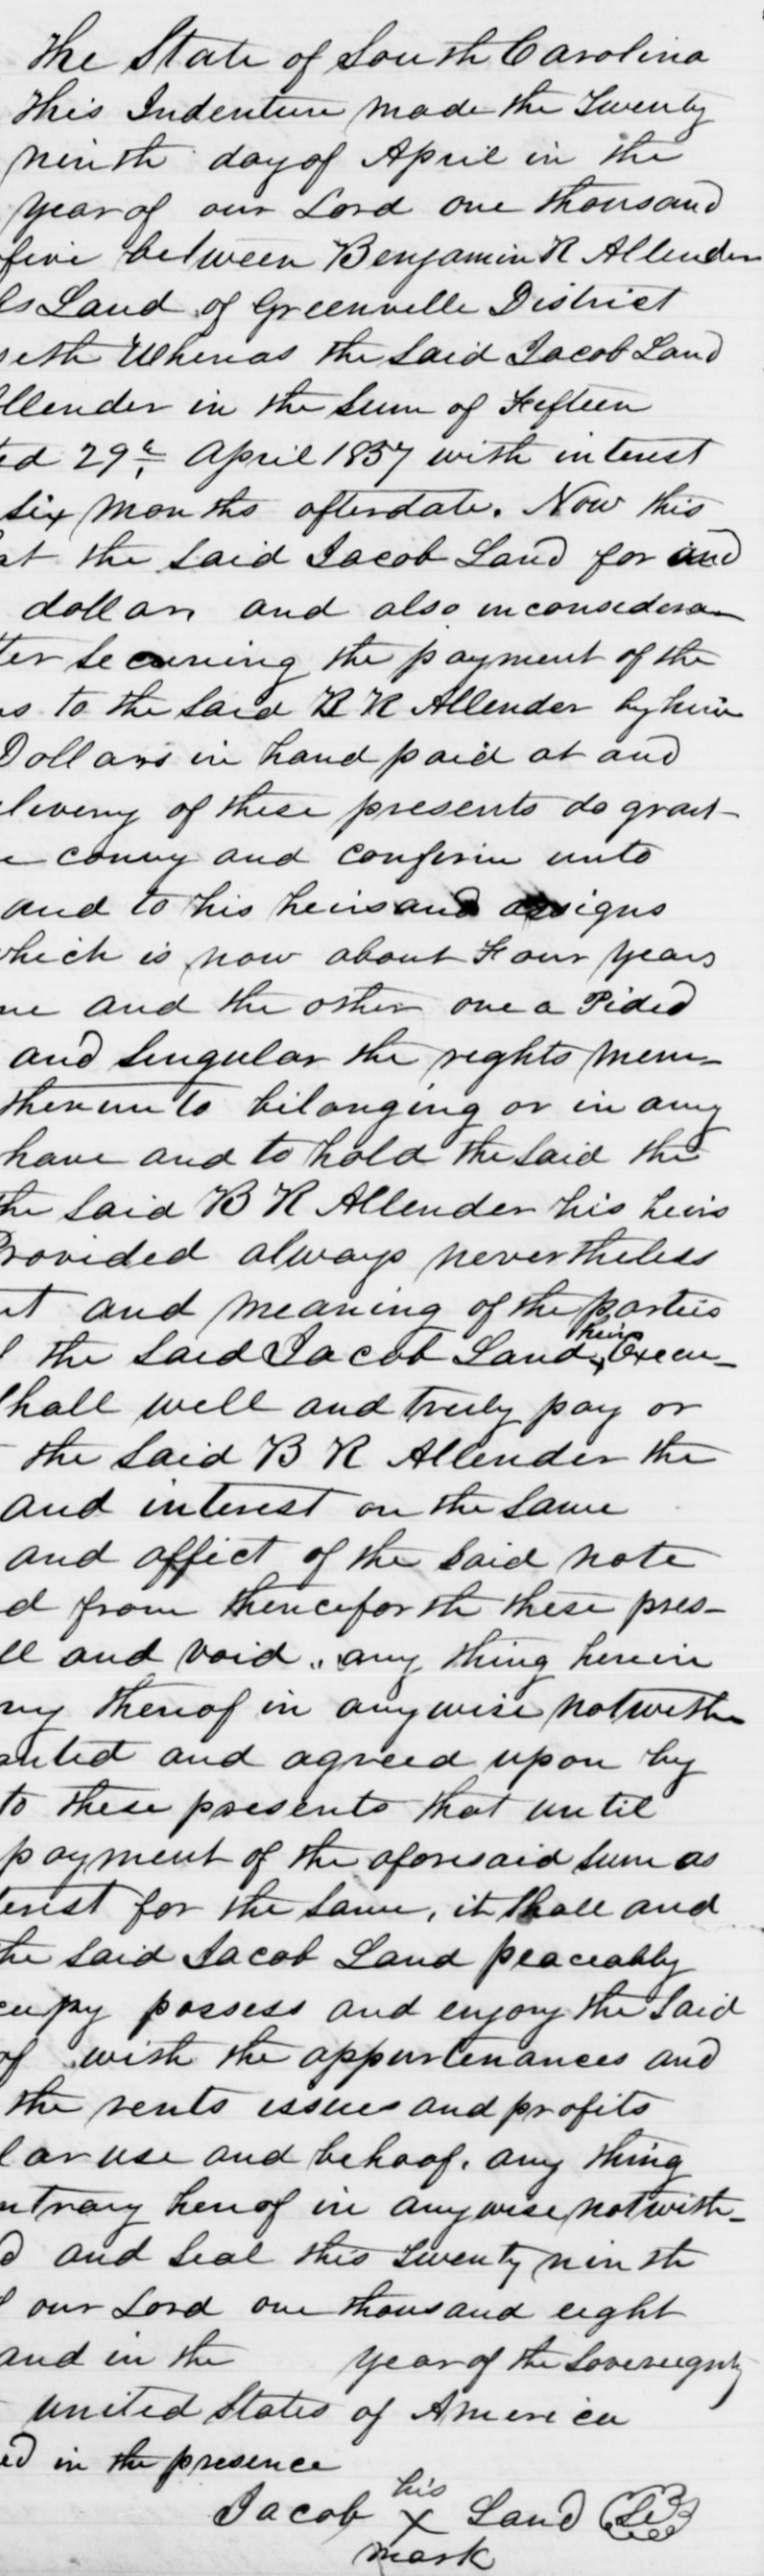 The State of South Carolina
This Indenture made the Twenty
ninth day of April in the
year of our Lord one thousand
five between Benjamin R Allender
s Land of Greenville District
seth Whereas the said Jacob Land
llender in the sum of Fifteen
ed 29th April 1857 with interest
six months after date. Now this
at the said Jacob Land for and
dollars and also in considera
ter securing the payment of the
s to the said B R Allender by him
Dollars in hand paid at and
livery of these presents do grant
e convey and confirm unto
and to his heirs and assigns
which is now about Four years
ne and the other one a Pided
and singular the rights mem-
thereunto belonging or in any
have and to hold the said the
the said B R Allender his heirs
Provided always nevertheless
t and meaning of the parties
the said Jacob Land, heirs Execu-
shall well and truly pay or
the said B R Allender the
and interest on the same
and affect of the said note
d from thenceforth these pres-
ll and void, any thing herein
ry thereof in anywise notwith
anted and agreed upon by
to these presents that until
payment of the aforesaid sum as
erest for the same, it shall and
the said Jacob Land peaceably
cupy possess and enjoy the said
of with the appurtenances and
the rents issues and profits
lar use and behoof. any thing
ntrary hereof in anywise notwith-
d and Seal this Twenty ninth
our Lord one thousand eight
and in the year of the Sovereignty
united States of America
ed in the presence
his
Jacob X Land LS
mark